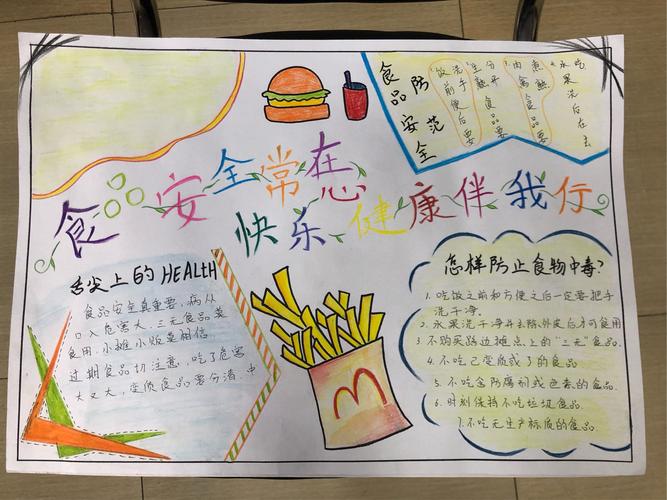 食品安全常在思
快乐健康伴我行
食品安全
防范
饭前便后要
洗手
生熟食品要
分开
肉禽食品要
煮熟
水果洗后在去
吃
舌尖上的HEALTH
食品安全真重要,病从
口入危害大.三无食品莫
食用.小摊小贩莫相信.
过期食品切注意,吃了危害
大又大,变质食品要分清.中
怎样防止食物中毒?
1.吃饭之前和方便之后一定要把手
洗干净.
2.水果洗干净并去除外皮后才可食用
3.不购买路边摊点上的"三无"食品.
4.不吃已变质或了的食品
5.不吃含防腐剂或色素的食品.
6.时刻保持不吃垃圾食品.
7.不吃无生产标质的食品.